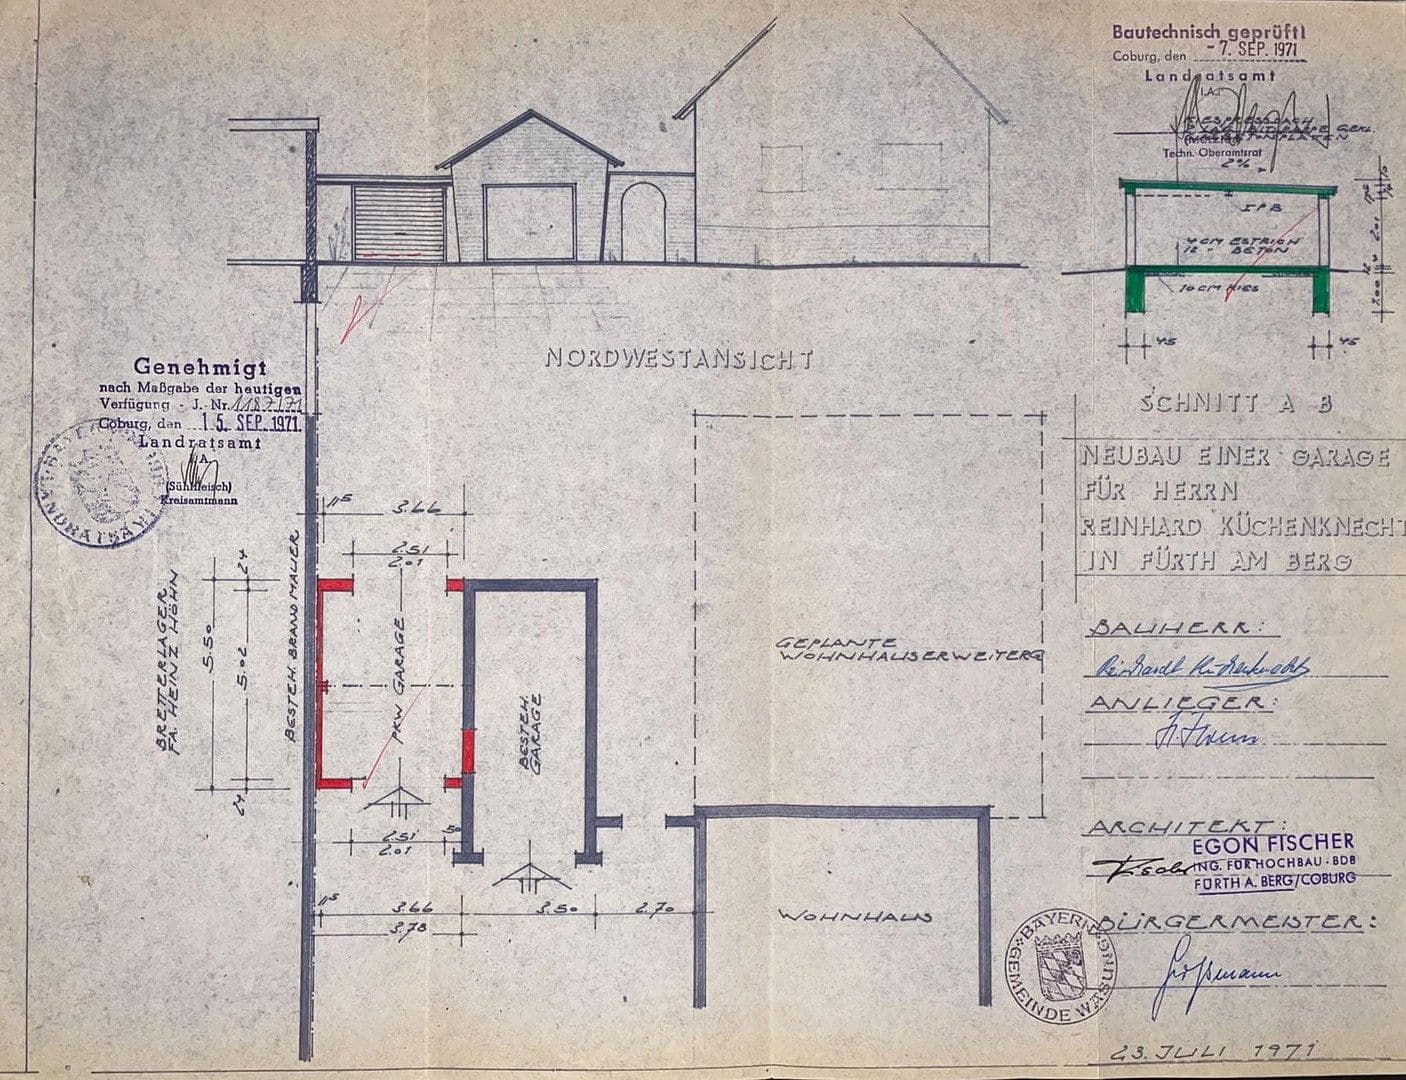 Bautechnisch geprüft!
Coburg, den - 7. SEP. 1971
Landratsamt
I.A.
KIESPRESSDACH
GASBETONPLATTEN
Techn. Oberamtsrat
2%
IPB
4 CM ESTRICH
12 " BETON
10 CM KIES
45
45
SCHNITT A B
NORDWESTANSICHT
Genehmigt
nach Maßgabe der heutigen
Verfügung - J.-Nr. 1187/71
Coburg, den 15. SEP. 1971
Landratsamt
I.A.
(Sühlfleisch)
Kreisamtmann
NEUBAU EINER GARAGE
FÜR HERRN
REINHARD KÜCHENKNECHT
IN FÜRTH AM BERG
11⁵
3.66
2.51
2.01
24
5.50
5.02
24
BRETTERLAGER
FA. HEINZ HÖHN
BESTEH. BRANDMAUER
PKW GARAGE
BESTEH.
GARAGE
GEPLANTE
WOHNHAUSERWEITERG
2.51
2.01
50
11⁵
3.66
3.50
2.70
3.78
WOHNHAUS
BAUHERR:
Reinhardt Küchenknecht
ANLIEGER:
ARCHITEKT:
EGON FISCHER
ING. FÜR HOCHBAU · BDB
FÜRTH A. BERG/COBURG
BÜRGERMEISTER:
BAYERN
GEMEINDE WASUNGEN
23. JULI 1971